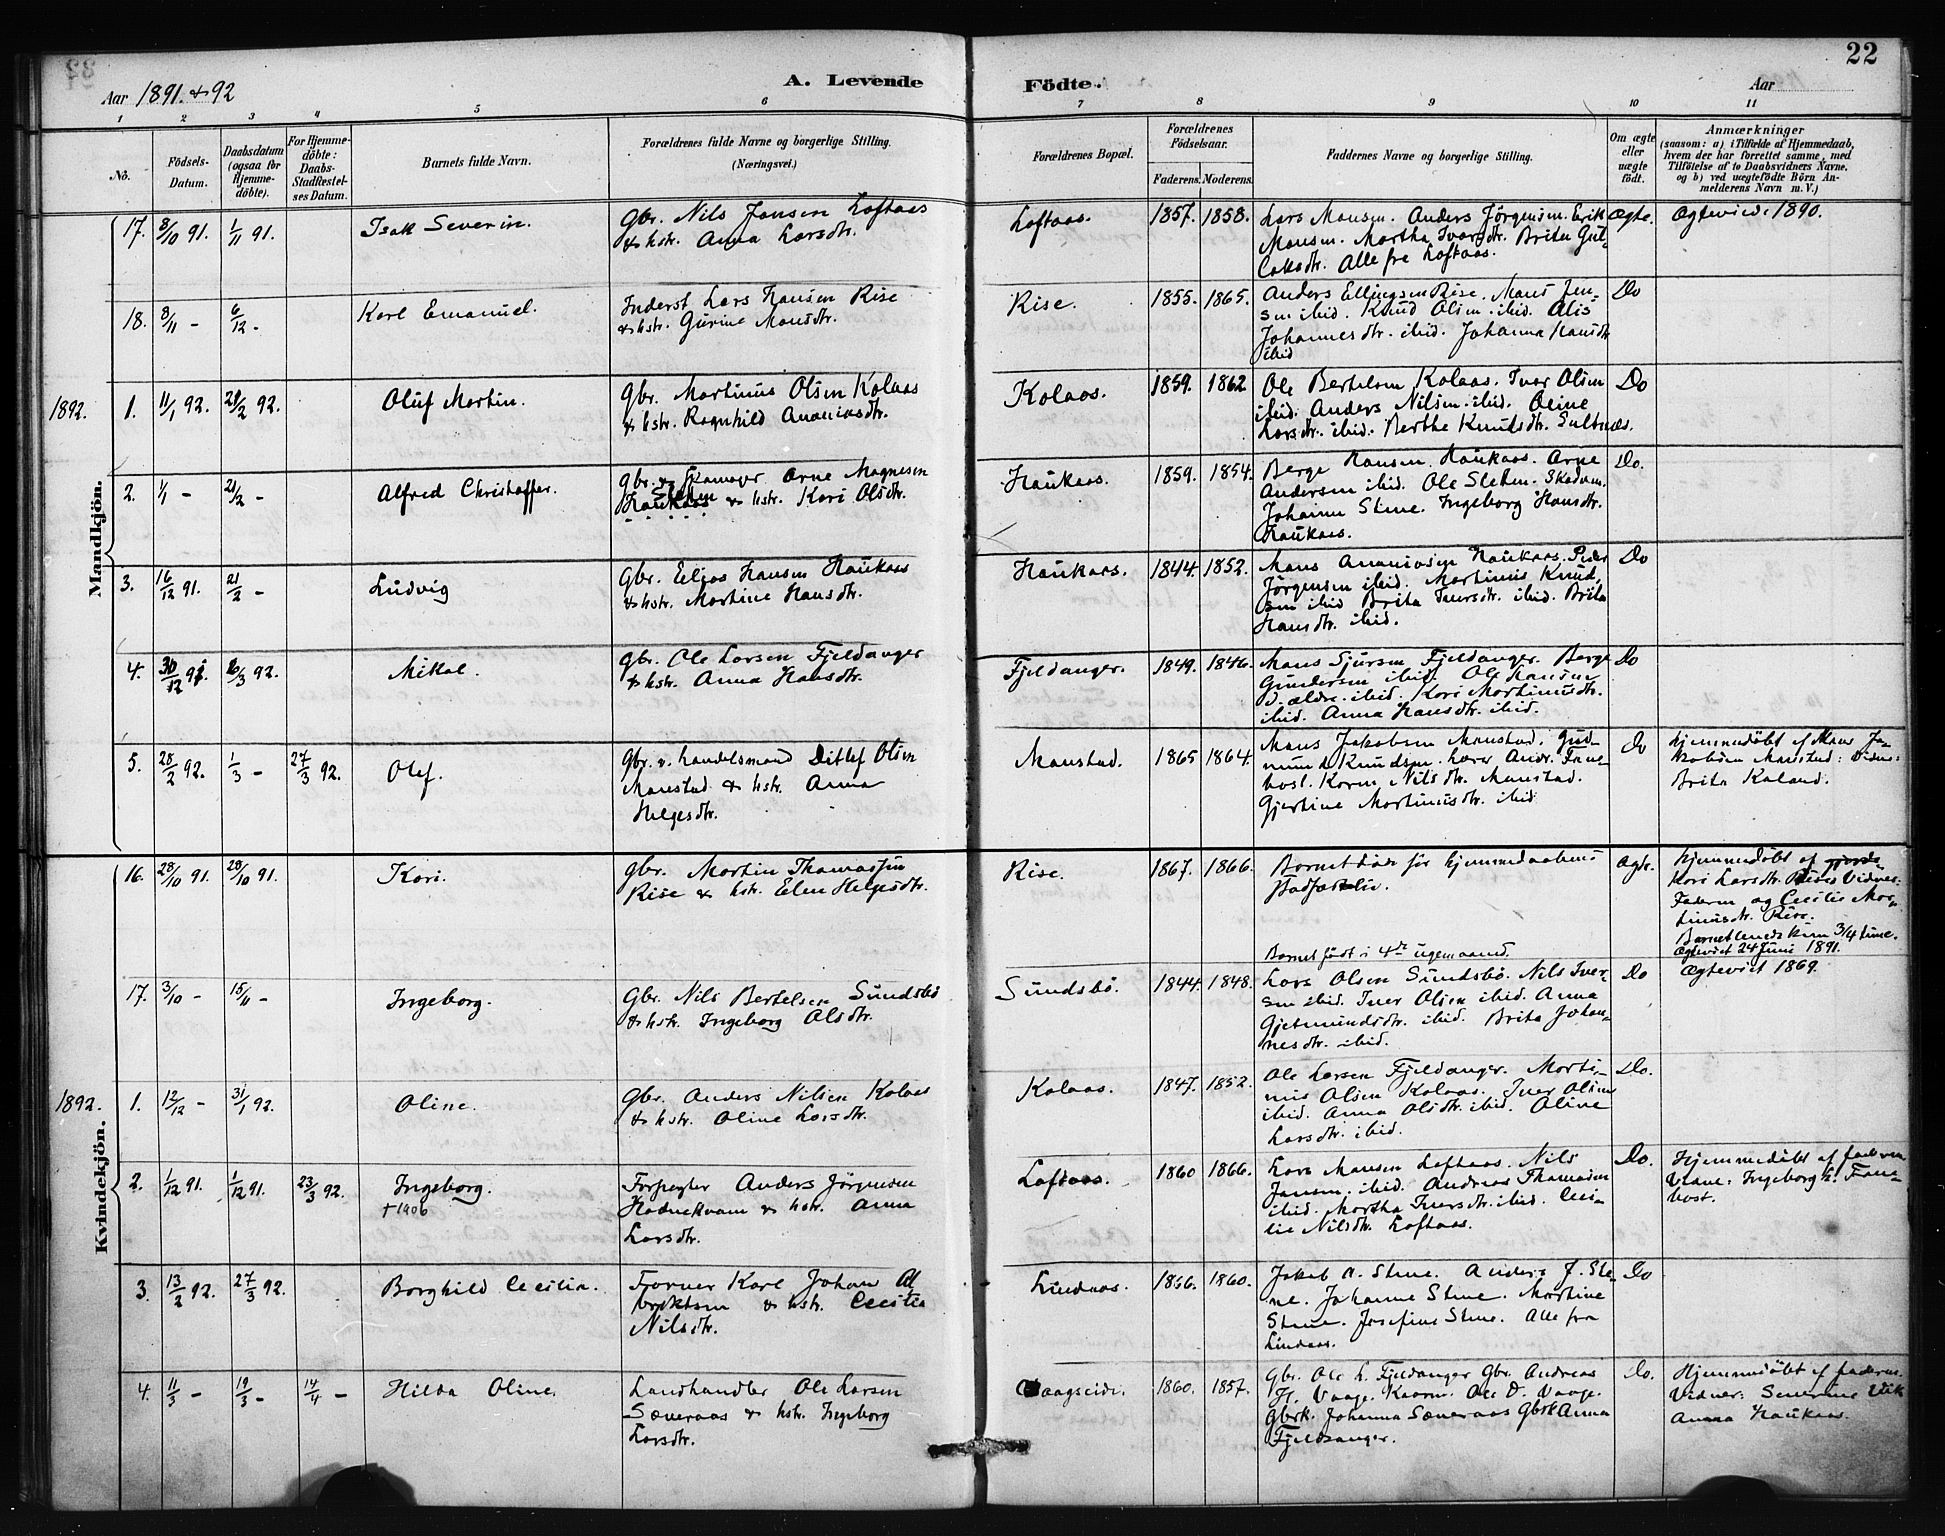 22
Aar 1891 & 92
A. Levende Födte.
Aar
1 2 3 4 5 6 7 8 9 10 11
No.
Födsels-
Datum.
Daabsdatum
(ogsaa for
Hjemme-
döbte).
For Hjemme-
döbte:
Daabs-
Stadfæstel-
ses Datum.
Barnets fulde Navn.
Forældrenes fulde Navne og borgerlige Stilling.
(Næringsvei.)
Forældrenes Bopæl.
Forældrenes
Födselsaar.
Faderens. Moderens.
Faddernes Navne og borgerlige Stilling.
Om ægte
eller
uægte
födt.
Anmærkninger
(saasom: a) i Tilfælde af Hjemmedaab,
hvem der har forrettet samme, med
Tilföielse af to Daabsvidners Navne,
og b) ved uægtefödte Börn An-
melderens Navn m. V.)
Mandkjön.
17. 8/10 91. 1/11 91. Isak Severin.
Gbr. Nils Jansen Loftaas
& hstr. Anna Larsdtr.
Loftaas. 1857. 1858.
Lars Monsen. Anders Jörgensen. Erik
Monsen. Martha Ivarsdtr. Brita Gut-
Alle fra Loftaas.
Ægte. Ægteviede 1890.
18. 8/11 - 6/12 - Karl Emanuel.
Inderst Lars Hansen Rise
& hstr. Gurine Monsdtr.
Rise. 1855. 1865.
Anders Ellingsen Rise. Mons Jen-
sen ibid. Knud Olsen ibid. Alis
Johannesdtr. ibid. Johanna Hansdtr
ibid
Do
1892. 1. 11/1 92. 21/2 92. Oluf Martin.
Gbr. Martinus Olsen Kolaas
& hstr. Ragnhild Ananiasdtr.
Kolaas. 1859. 1862
Ole Bertelsen Kolaas. Ivar Olsen
ibid. Anders Nilsen ibid. Oline
Larsdtr. ibid. Berthe Knutsdtr.
Do
2. 1/1 - 21/2 - Alfred Christoffer.
Gbr. & Skomager Arne Magnesen
Haukaas & hstr. Kari Olsdtr.
Haukaas. 1859. 1854.
Berge Hansen Haukaas. Arne
Andersen ibid. Ole Sletten.
Johanne Stene. Ingeborg Hansdtr.
Haukaas.
Do.
3. 16/12 91. 21/2 - Ludvig
Gbr. Elias Hansen Haukaas
& hstr. Martine Hansdtr.
Haukaas. 1844. 1852.
Mons Ananiasen Haukaas. Peder
Jörgensen ibid. Martinus Knud-
sen ibid Brita Iversdtr. ibid. Brita
Hansdtr. ibid.
Do
4. 30/12 91 /3 92. Mikal.
Gbr. Ole Larsen Fjeldanger
& hstr. Anna Hansdtr.
Fjeldanger. 1849. 1846.
Mons Sjursen Fjeldanger. Berge
Gundersen ibid. Ole Hansen
d. ældre ibid. Kari Martinusdtr.
ibid. Anna Hansdtr. ibid.
Do
5. 28/2 92. 1/3 - 27/3 92. Olef.
Gbr. & handelsmand Ditlef Olsen
Monstad & hstr. Anna
Helgesdtr.
Monstad. 1865 1864.
Mons Jakobsen Monstad. Gud-
mund Knudsen.
Karen Nilsdtr. Monstad.
Gjertine Martinusdtr. ibid
Do
Hjemmedöbt af Mons Ja-
kobsen Monstad: Vidne:
Brita Kaland.
Kvindekjön.
16. 28/10 91. 28/10 91. Kari.
Gbr. Martin Thomassen
Rise & hstr. Elen Helgesdtr.
Rise. 1867. 1866.
Barnet döde för hjemmedaabens
Stadfæstelse.
Barnet födt i 4de ugemaaned.
Ægte.
Hjemmedöbt af
Kari Larsdtr. Rise. Vidner:
Faderen og Cecilie Mar-
tinusdtr. Rise.
Barnet levede kun 3/4 time.
Ægteviet 24 Juni 1891.
17. 3/10 - 15/11 - Ingeborg.
Gbr. Nils Bertelsen Sundsbö
& hstr. Ingeborg Olsdtr.
Sundsbö. 1844. 1848.
Lars Olsen Sundsbö. Nils Iver-
sen ibid. Iver Olsen ibid. Anna
Gjetmundsdtr. ibid. Brita Johan-
nesdtr. ibid.
Do Ægteviet 1869.
1892. 1. 12/12 - 31/1 92. Oline.
Gbr. Anders Nilsen Kolaas
& hstr. Oline Larsdtr.
Kolaas. 1847. 1852.
Ole Larsen Fjeldanger. Marti-
nus Olsen Kolaas. Iver Olsen
ibid. Anna Olsdtr. ibid. Oline
Larsdtr. ibid.
Do.
2. 1/12 91. 1/12 91. 23/3 92. Ingeborg.
† 1906
Forpagter Anders Jörgensen
Hodnekvam & hstr. Anna
Larsdtr.
Loftaas. 1860 1866.
Lars Monsen Loftaas. Nils
Jansen ibid. Andreas Thomasen
ibid. Martha Iversdtr. ibid. Ceci-
lie Nilsdtr. Loftaas.
Do.
Hjemmedöbt af faderen
Ingeborg
3. 13/2 92. 27/3 92. Borghild Cecilia.
Garver Karl Johan Al
brektsen & hstr. Cecilia
Nilsdtr.
Lindaas. 1866. 1860.
Jakob A. Stene. Anders J. Ste-
ne. Johanne Stene. Martine
Stene. Josefine Stene. Alle fra
Lindaas.
Do
4. 11/3 - 19/3 - 14/4 - Hilda Oline.
Landhandler Ole Larsen
Sæveraas & hstr. Ingeborg
Larsdtr.
Vaagseide. 1860. 1857.
Gbr. Ole L. Fjeldanger Gbr. Andreas
H. Vaage. Ole O. Vaage.
Gbrk. Johanna Sæveraas Gbrk Anna
Fjeldsanger.
Do.
Hjemmedöbt af faderen.
Vidner: Severine Vik
Anna Haukaas.